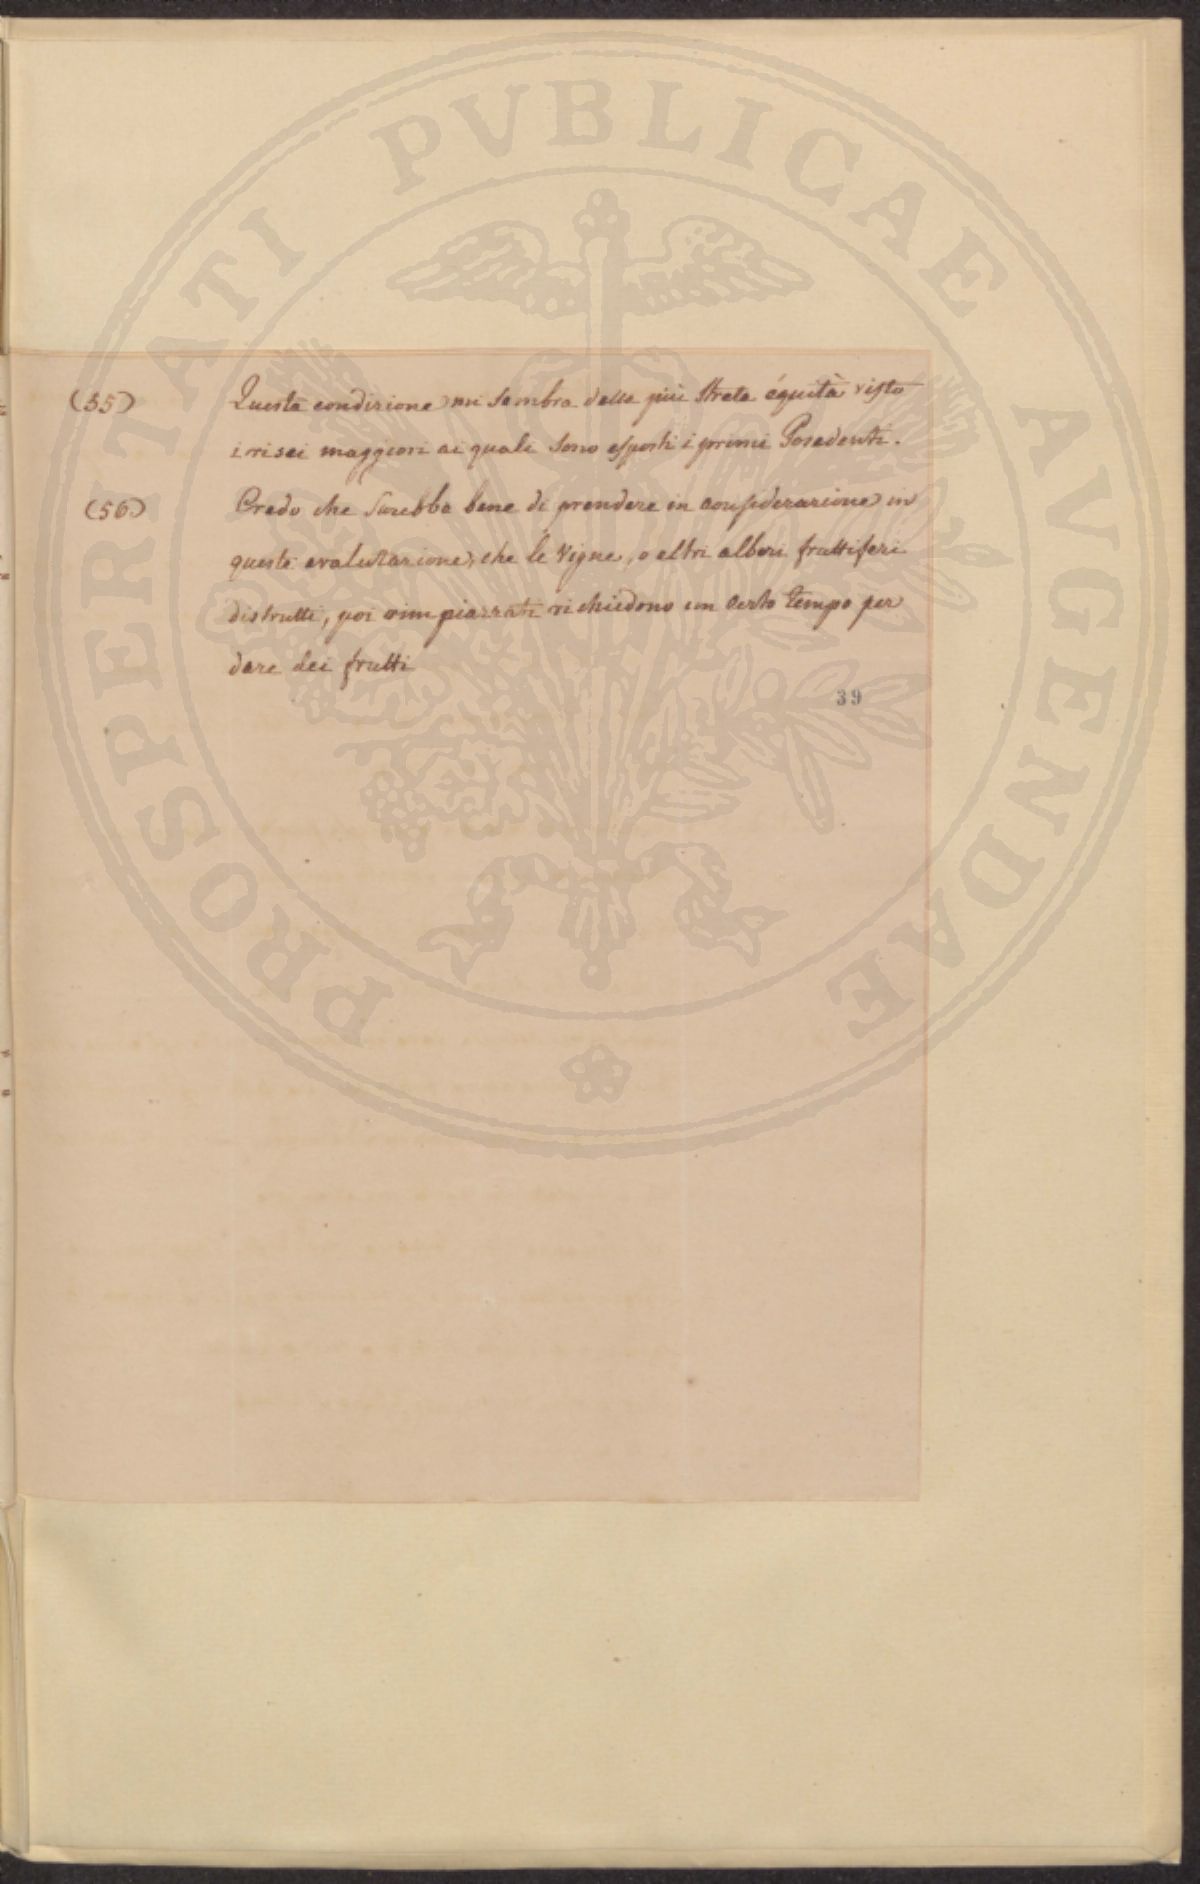 PROSPERITATI PVBLICAE AVGENDAE
(55) Questa condizione mi sembra della più streta équità visto
i risci maggiori ai quali sono esposti i primi Posedenti.
(56) Credo che sarebbe bene di prendere in considerazione in
questa evalutazione, che le vigne, o altri alberi fruttiferi
distrutti, poi rimpiazzati richiedono un certo tempo per
dare dei frutti
39